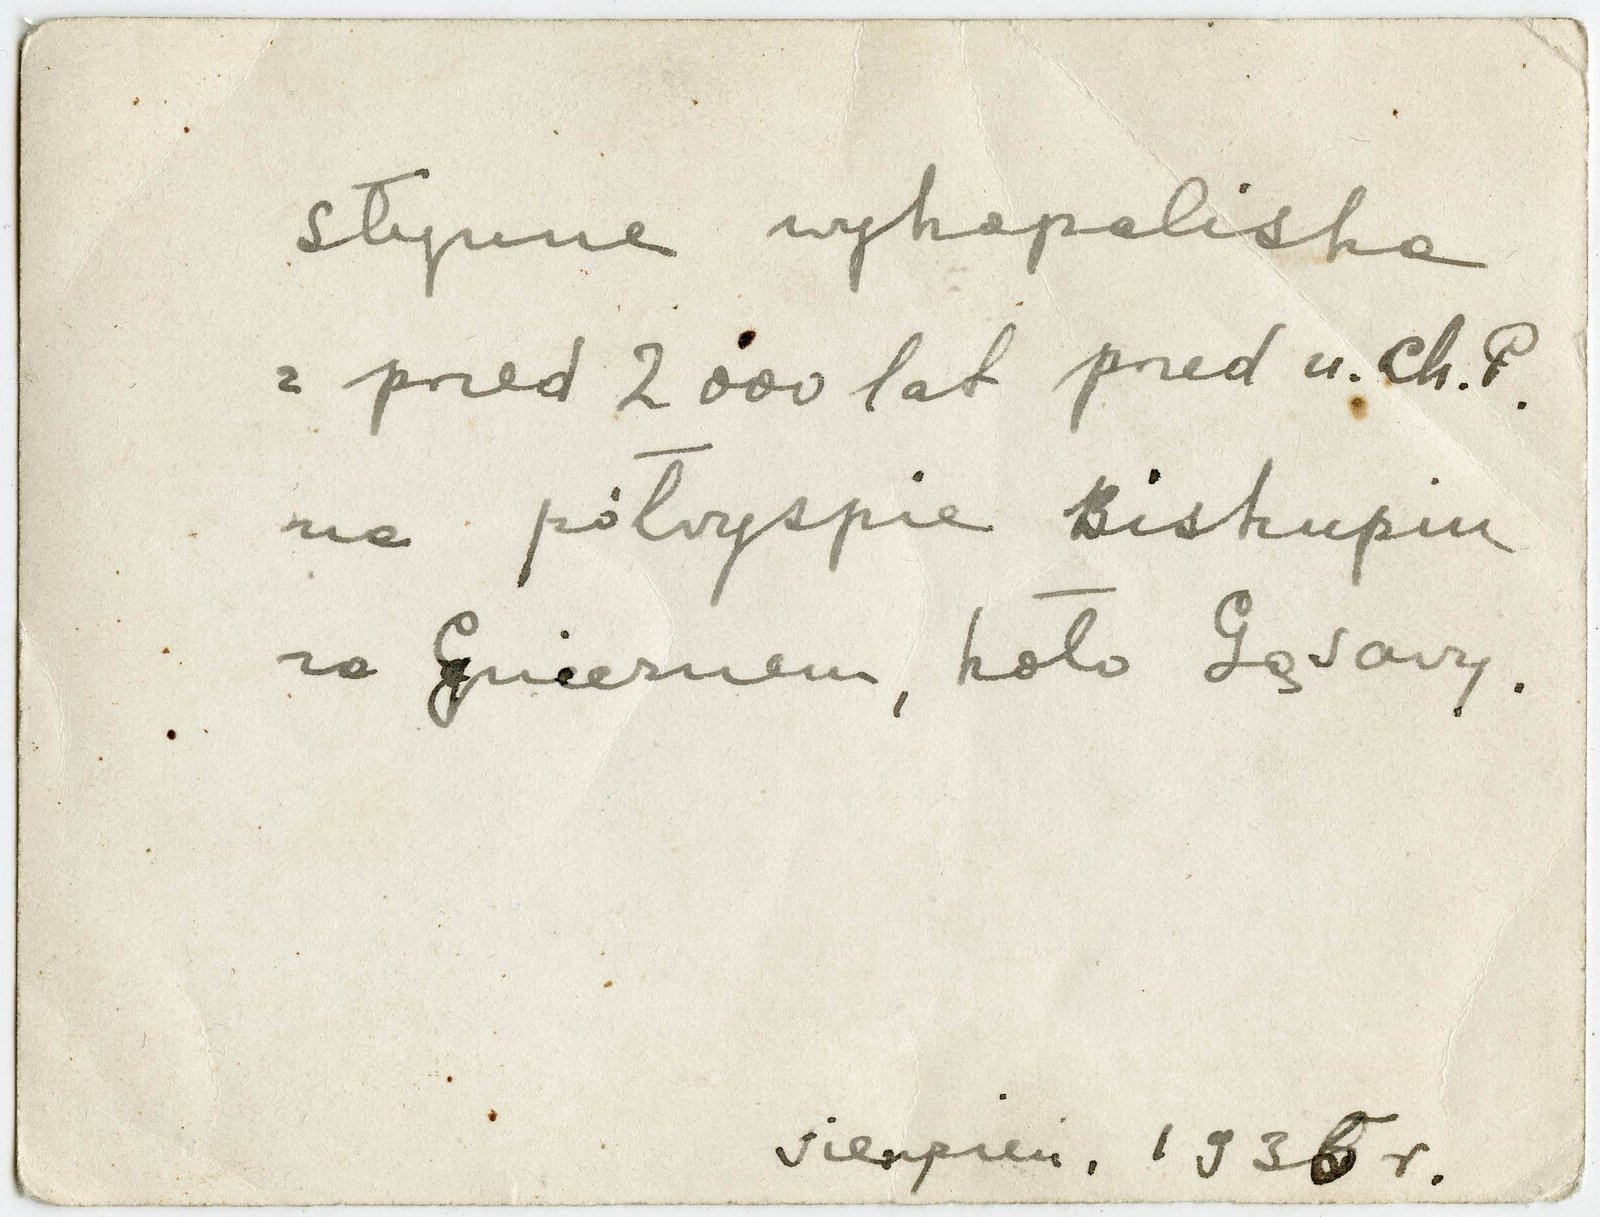 słynne wykopaliska
z przed 2000 lat przed n. Ch. P.
na półwyspie Biskupin
za Gnieznem, koło Gąsawy.
sierpień. 1936 r.